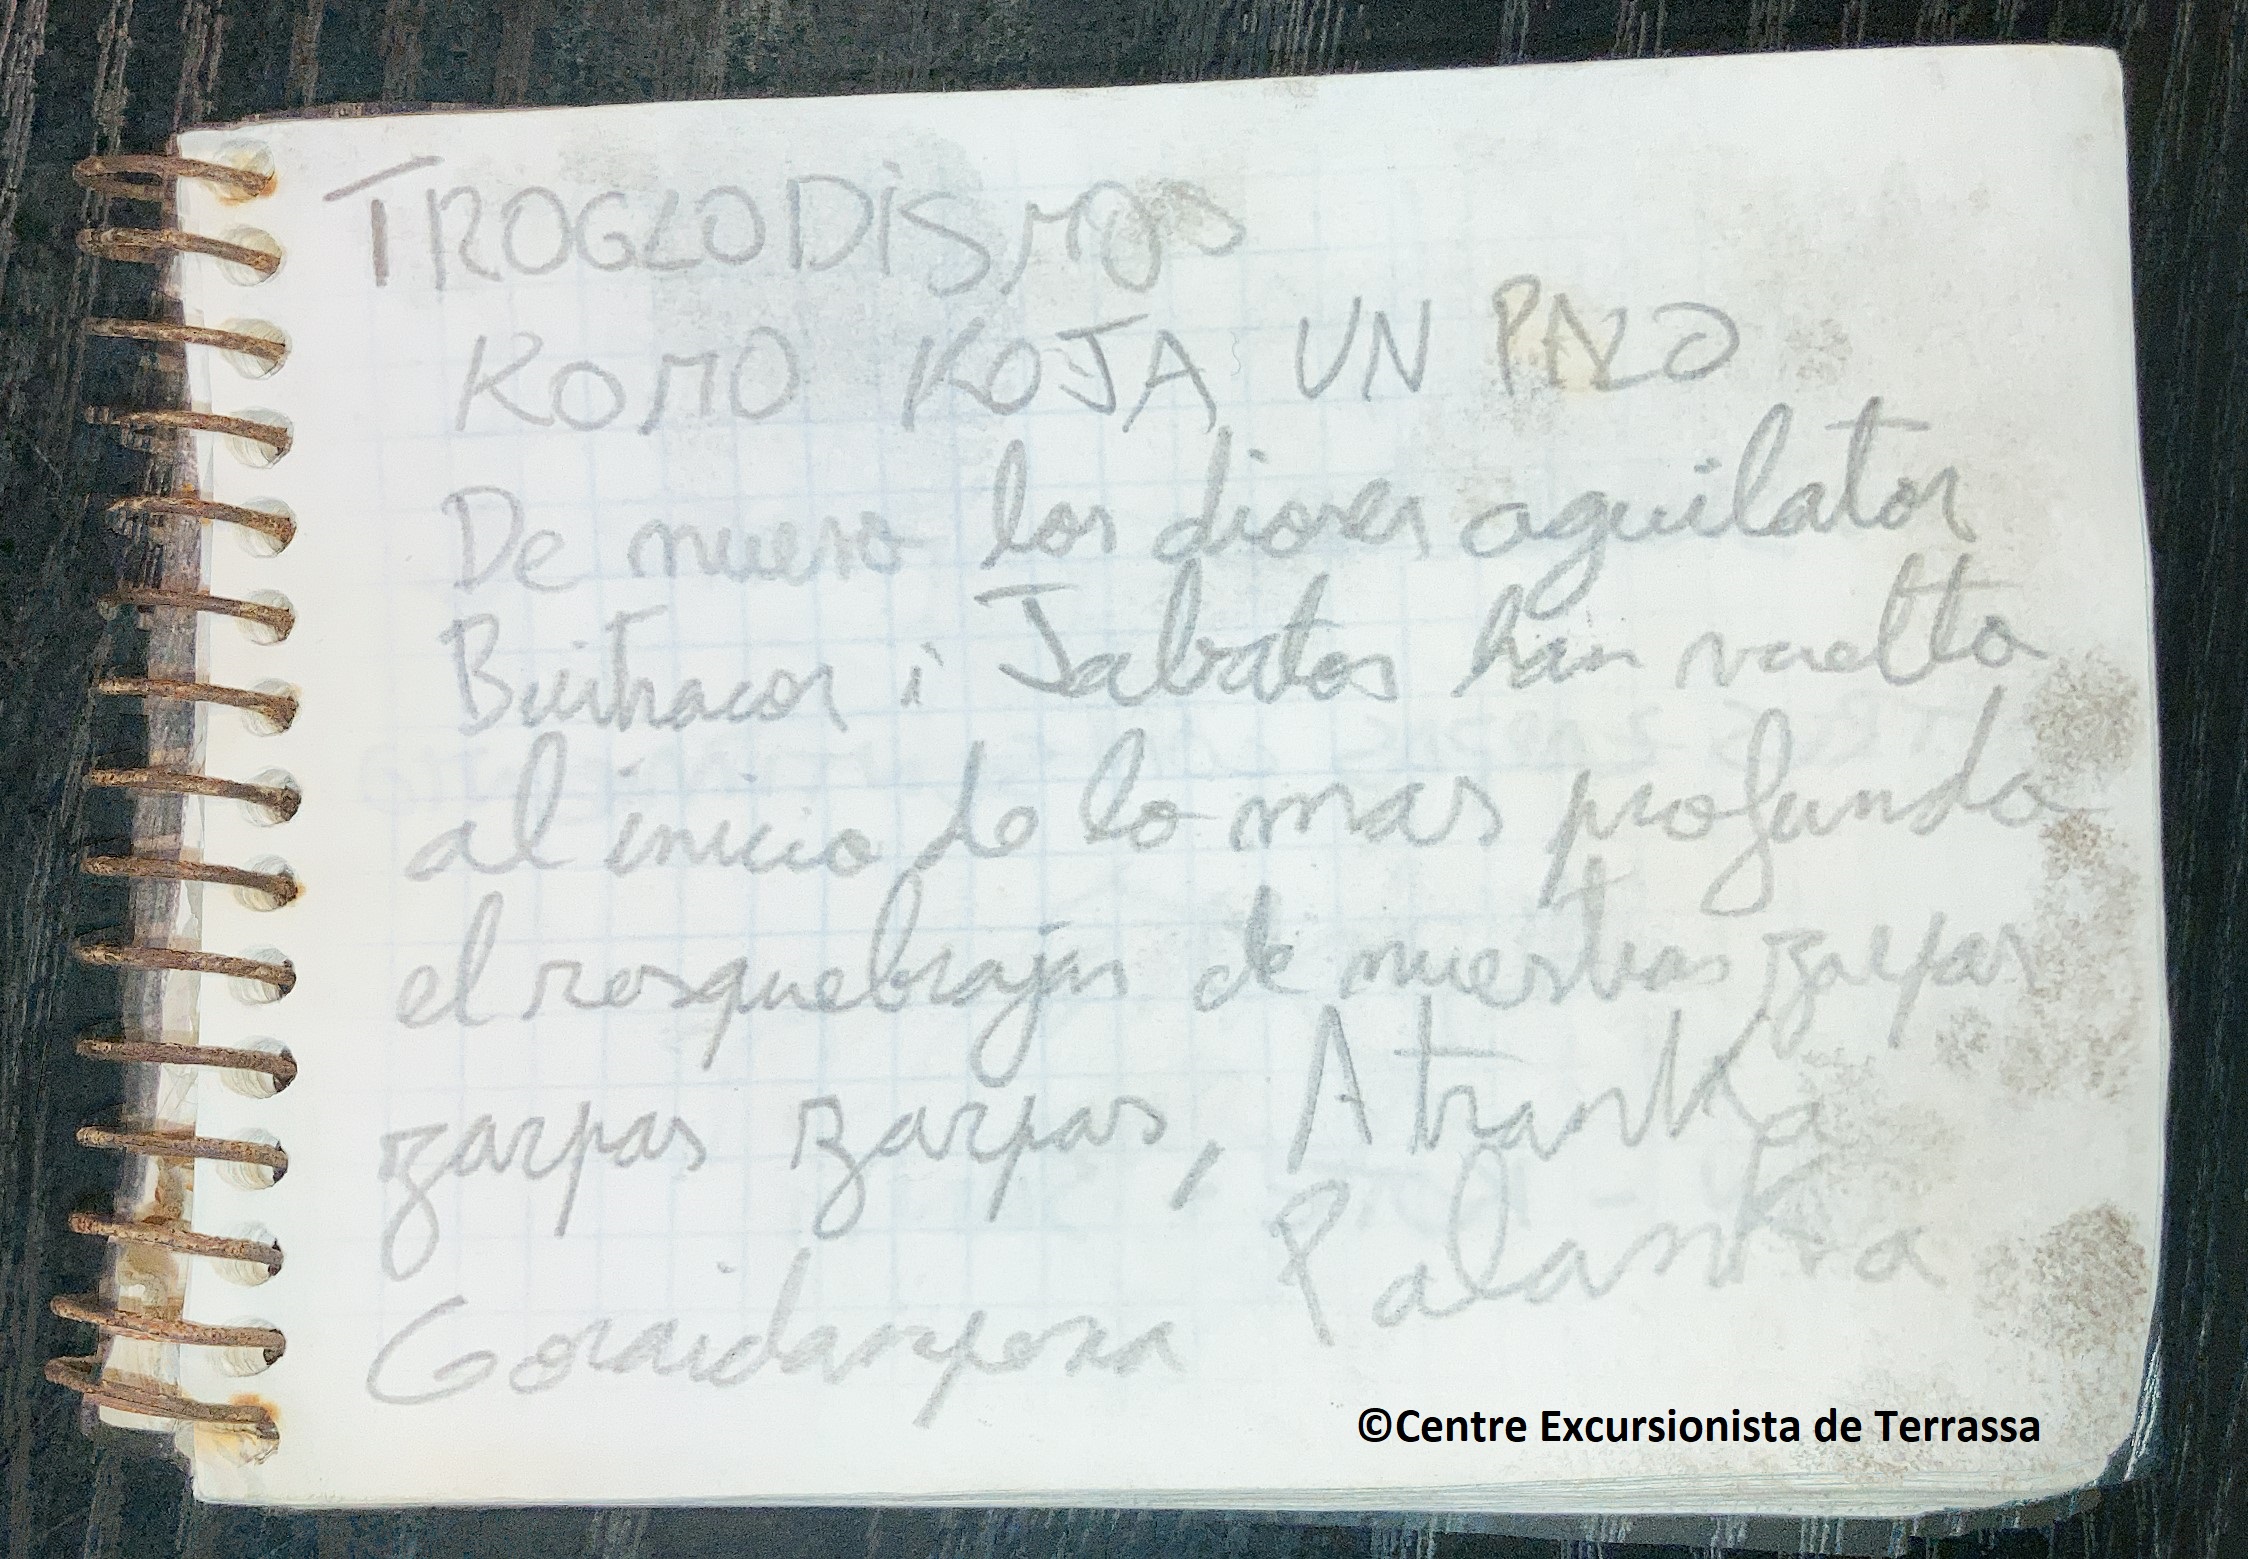 TROGLODiSMOS
KOMO KOJA UN PALO
De nuevo los dioses aguilatos
Buitracos i Jabatos han vuelto
al inicio de lo mas profundo
el resquebrajas de nuestras zarpas
zarpas zarpas, Atranka
Palanka
©Centre Excursionista de Terrassa